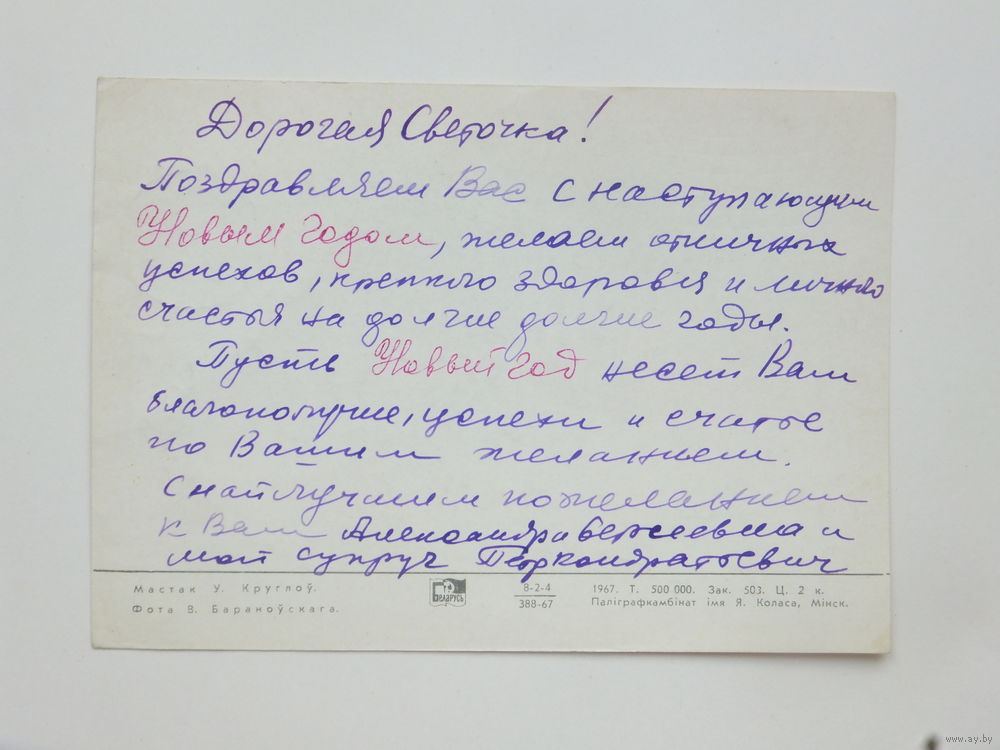 Дорогая Светочка!
Поздравляем Вас с наступающим
Новым Годом, желаем отличных
успехов, крепкого здоровья и личного
счастья на долгие долгие годы.
Пусть Новый год несет Вам
благополучие, успехи и счастье
по Вашим желаниям.
С наилучшим пожеланием
к Вам Александра Сергеевна и
мой супруг Петр Кондратьевич
Мастак У. Круглоў.
Фота В. Бараноўскага.
Беларусь
8-2-4
388-67
1967. Т. 500 000. Зак. 503. Ц. 2 к.
Паліграфкамбінат імя Я. Коласа, Мінск.
www.ay.by